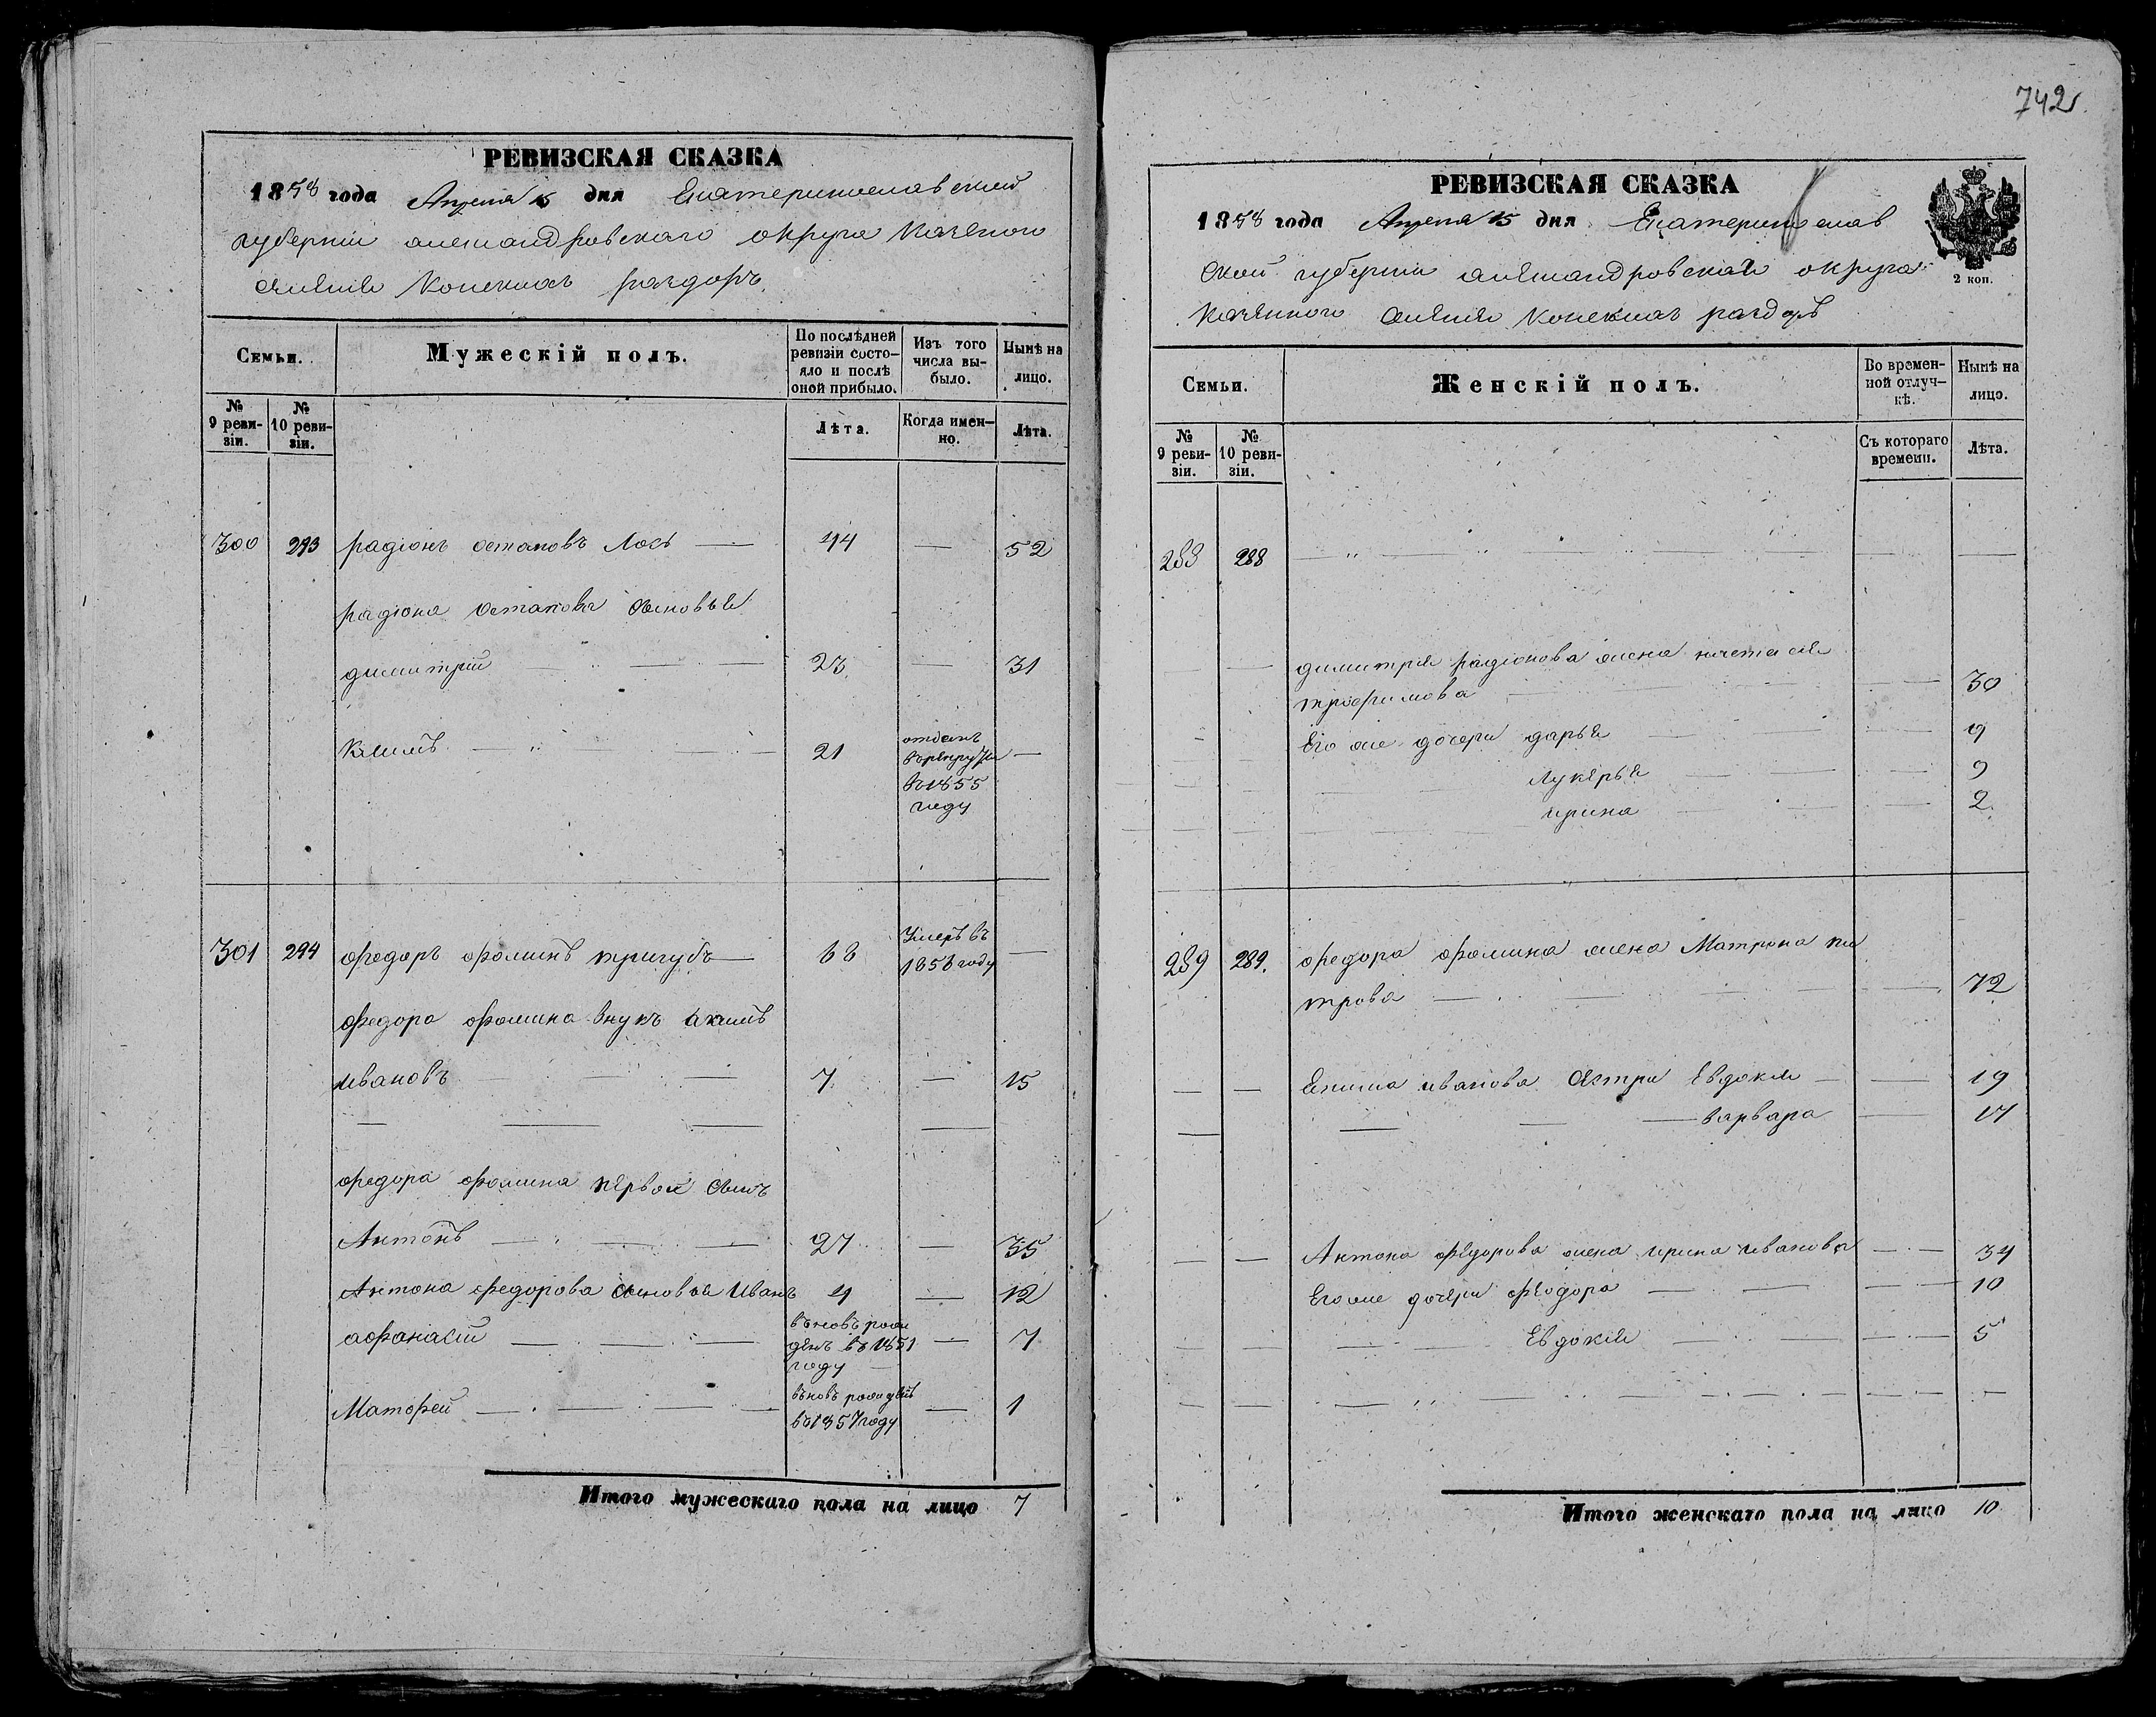 742
РЕВИЗСКАЯ СКАЗКА
1858 года Апреля 15 дня Екатеринославской
губернии александровскаго округа казеного
селения Конскихъ раздоръ
Семьи.
Мужескій полъ.
По послѣдней ревизіи состо-
яло и послѣ
оной прибыло.
Изъ того
числа вы-
было.
Нынѣ на
лицо.
№
9 реви-
зіи.
№
10 реви-
зіи.
Лѣта.
Когда имен-
но.
Лѣта.
300 293 радіонъ остаповъ Лось — 44 — 52
радіона остапова сыновья
димитрій — 23 — 31
Климъ — 21 отданъ
въ рекруты —
въ 1855
году
301 294 федоръ фоминъ тригубъ — 68 Умеръ въ
1858 году —
федора фомина внукъ акимъ
ивановъ — 7 — 15
федора фомина первой сынъ
Антонъ — 27 — 35
Антона федорова сыновья Иванъ 4 — 12
афанасій — въновь рож
денъ въ 1851
году — 7
Матфей — въновь рожденъ
въ 1857 году — 1
Итого мужескаго пола на лицо 7
РЕВИЗСКАЯ СКАЗКА
1858 года Апреля 15 дня Екатеринослав
ской губернии александровскаго округа
казенного селения Конскихъ раздоръ
2 коп.
Семьи.
Женскій полъ.
Во времен-
ной отлуч-
кѣ.
Нынѣ на
лицо.
№
9 реви-
зіи.
№
10 реви-
зіи.
Съ котораго
времени.
Лѣта.
288 288 — „ — „ —
димитрія радіонова жена настасия
трофимова — 30
Его же дочери дарья — 9
лукерья — 9
ирина — 2
289 289. федора фомина жена Матрона пе
трова — 72
Екима иванова сестри Евдокия — 19
варвара — 17
Антона федорова жена ирина иванова — 34
Его же дочери феодора — 10
Евдокия — 5
Итого женскаго пола на лицо 10